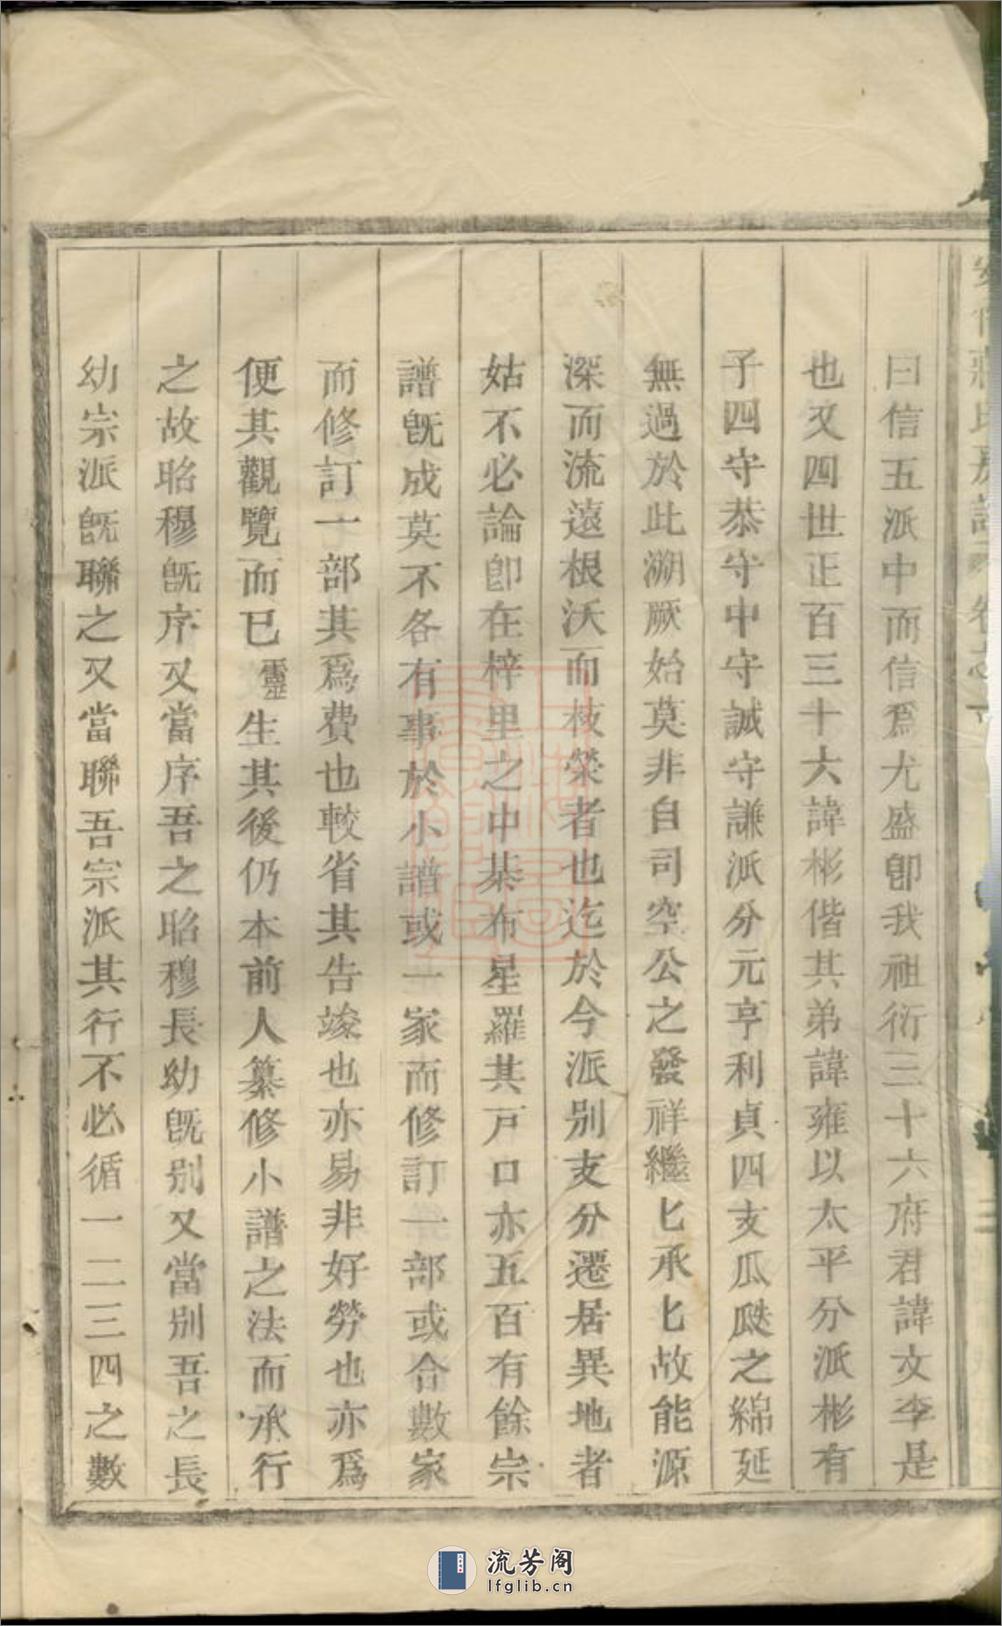 曰信五派中而信爲尤盛卽我祖衍三十六府君諱文李是
也又四世正百三十六諱彬偕其弟諱雍以太平分派彬有
子四守恭守中守誠守謙派分元亨利貞四支瓜瓞之綿延
無過於此溯厥始莫非自司空公之發祥繼匕承匕故能源
深而流遠根沃而枝榮者也迄於今派别支分遷居異地者
姑不必論卽在梓里之中棊布星羅其戸口亦五百有餘宗
譜旣成莫不各有事於小譜或一家而修訂一部或合數家
而修訂一部其爲費也較省其告竣也亦易非好勞也亦爲
便其觀覽而已靈生其後仍本前人纂修小譜之法而承行
之故昭穆旣序又當序吾之昭穆長幼旣别又當别吾之長
幼宗派旣聯之又當聯吾宗派其行不必循一二三四之數
流芳阁
lfglib.cn